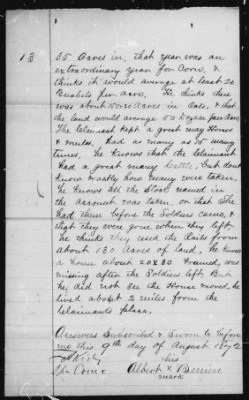 35 Acres in, that year was an
extraordinary year for Corn, &
thinks it would average at least 20
Bushels per acre. He thinks there
was about Acres in Oats, & that
the land would average 60 Dozen per Acre.
The Claimant kept a great many Horses
& mules. Had as many as 15 many
times. He Knows that the Claimant
Had a great many but dont
Know exactly how many were taken.
He Knows all the Stock named in
the account was taken, or that She
had them before the Soldiers came, &
that they were gone when they left.
He thinks they used the Rails from
about 150 acres of land. He knows
a house about 20x30 framed, was
missing after the Soldiers left, But
he did not see the House moved, he
lived about 2 miles from the
Claimants place.
Answers Subscribed & Sworn to before
me this 9th day of August 1872
his
Spl Comr Albert x
mark